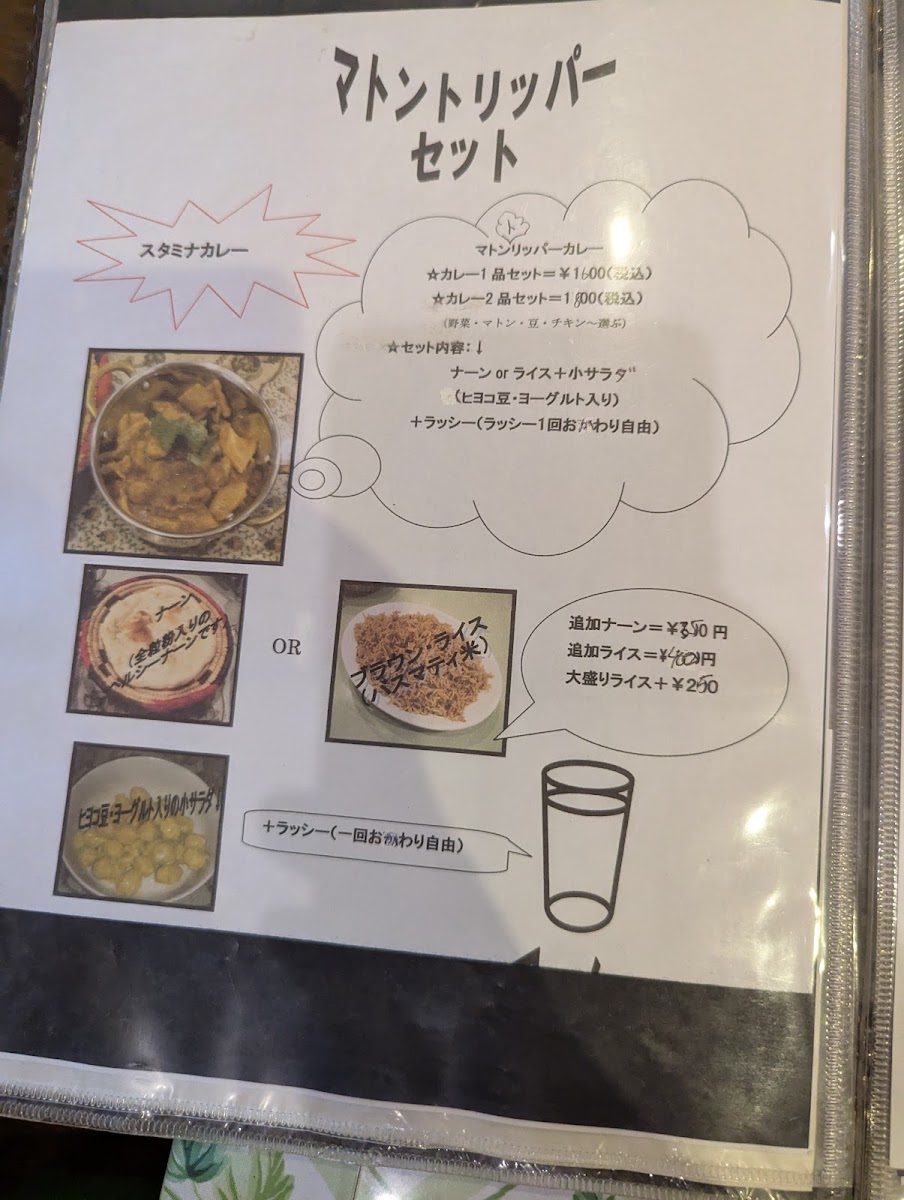 マトントリッパー
セット
スタミナカレー
ト
マトンリッパーカレー
☆カレー1品セット＝￥1600(税込)
☆カレー2品セット＝1800(税込)
(野菜・マトン・豆・チキン～選ぶ)
☆セット内容：↓
ナーン or ライス＋小サラダ
(ヒヨコ豆・ヨーグルト入り)
＋ラッシー(ラッシー1回おかわり自由)
ナーン
(全粒粉入りの
ヘルシーナーンです)
OR
ブラウン・ライス
(バスマティ米)
追加ナーン＝￥350円
追加ライス＝￥400円
大盛りライス＋￥250
ヒヨコ豆・ヨーグルト入りの小サラダ！
＋ラッシー(一回おかわり自由)